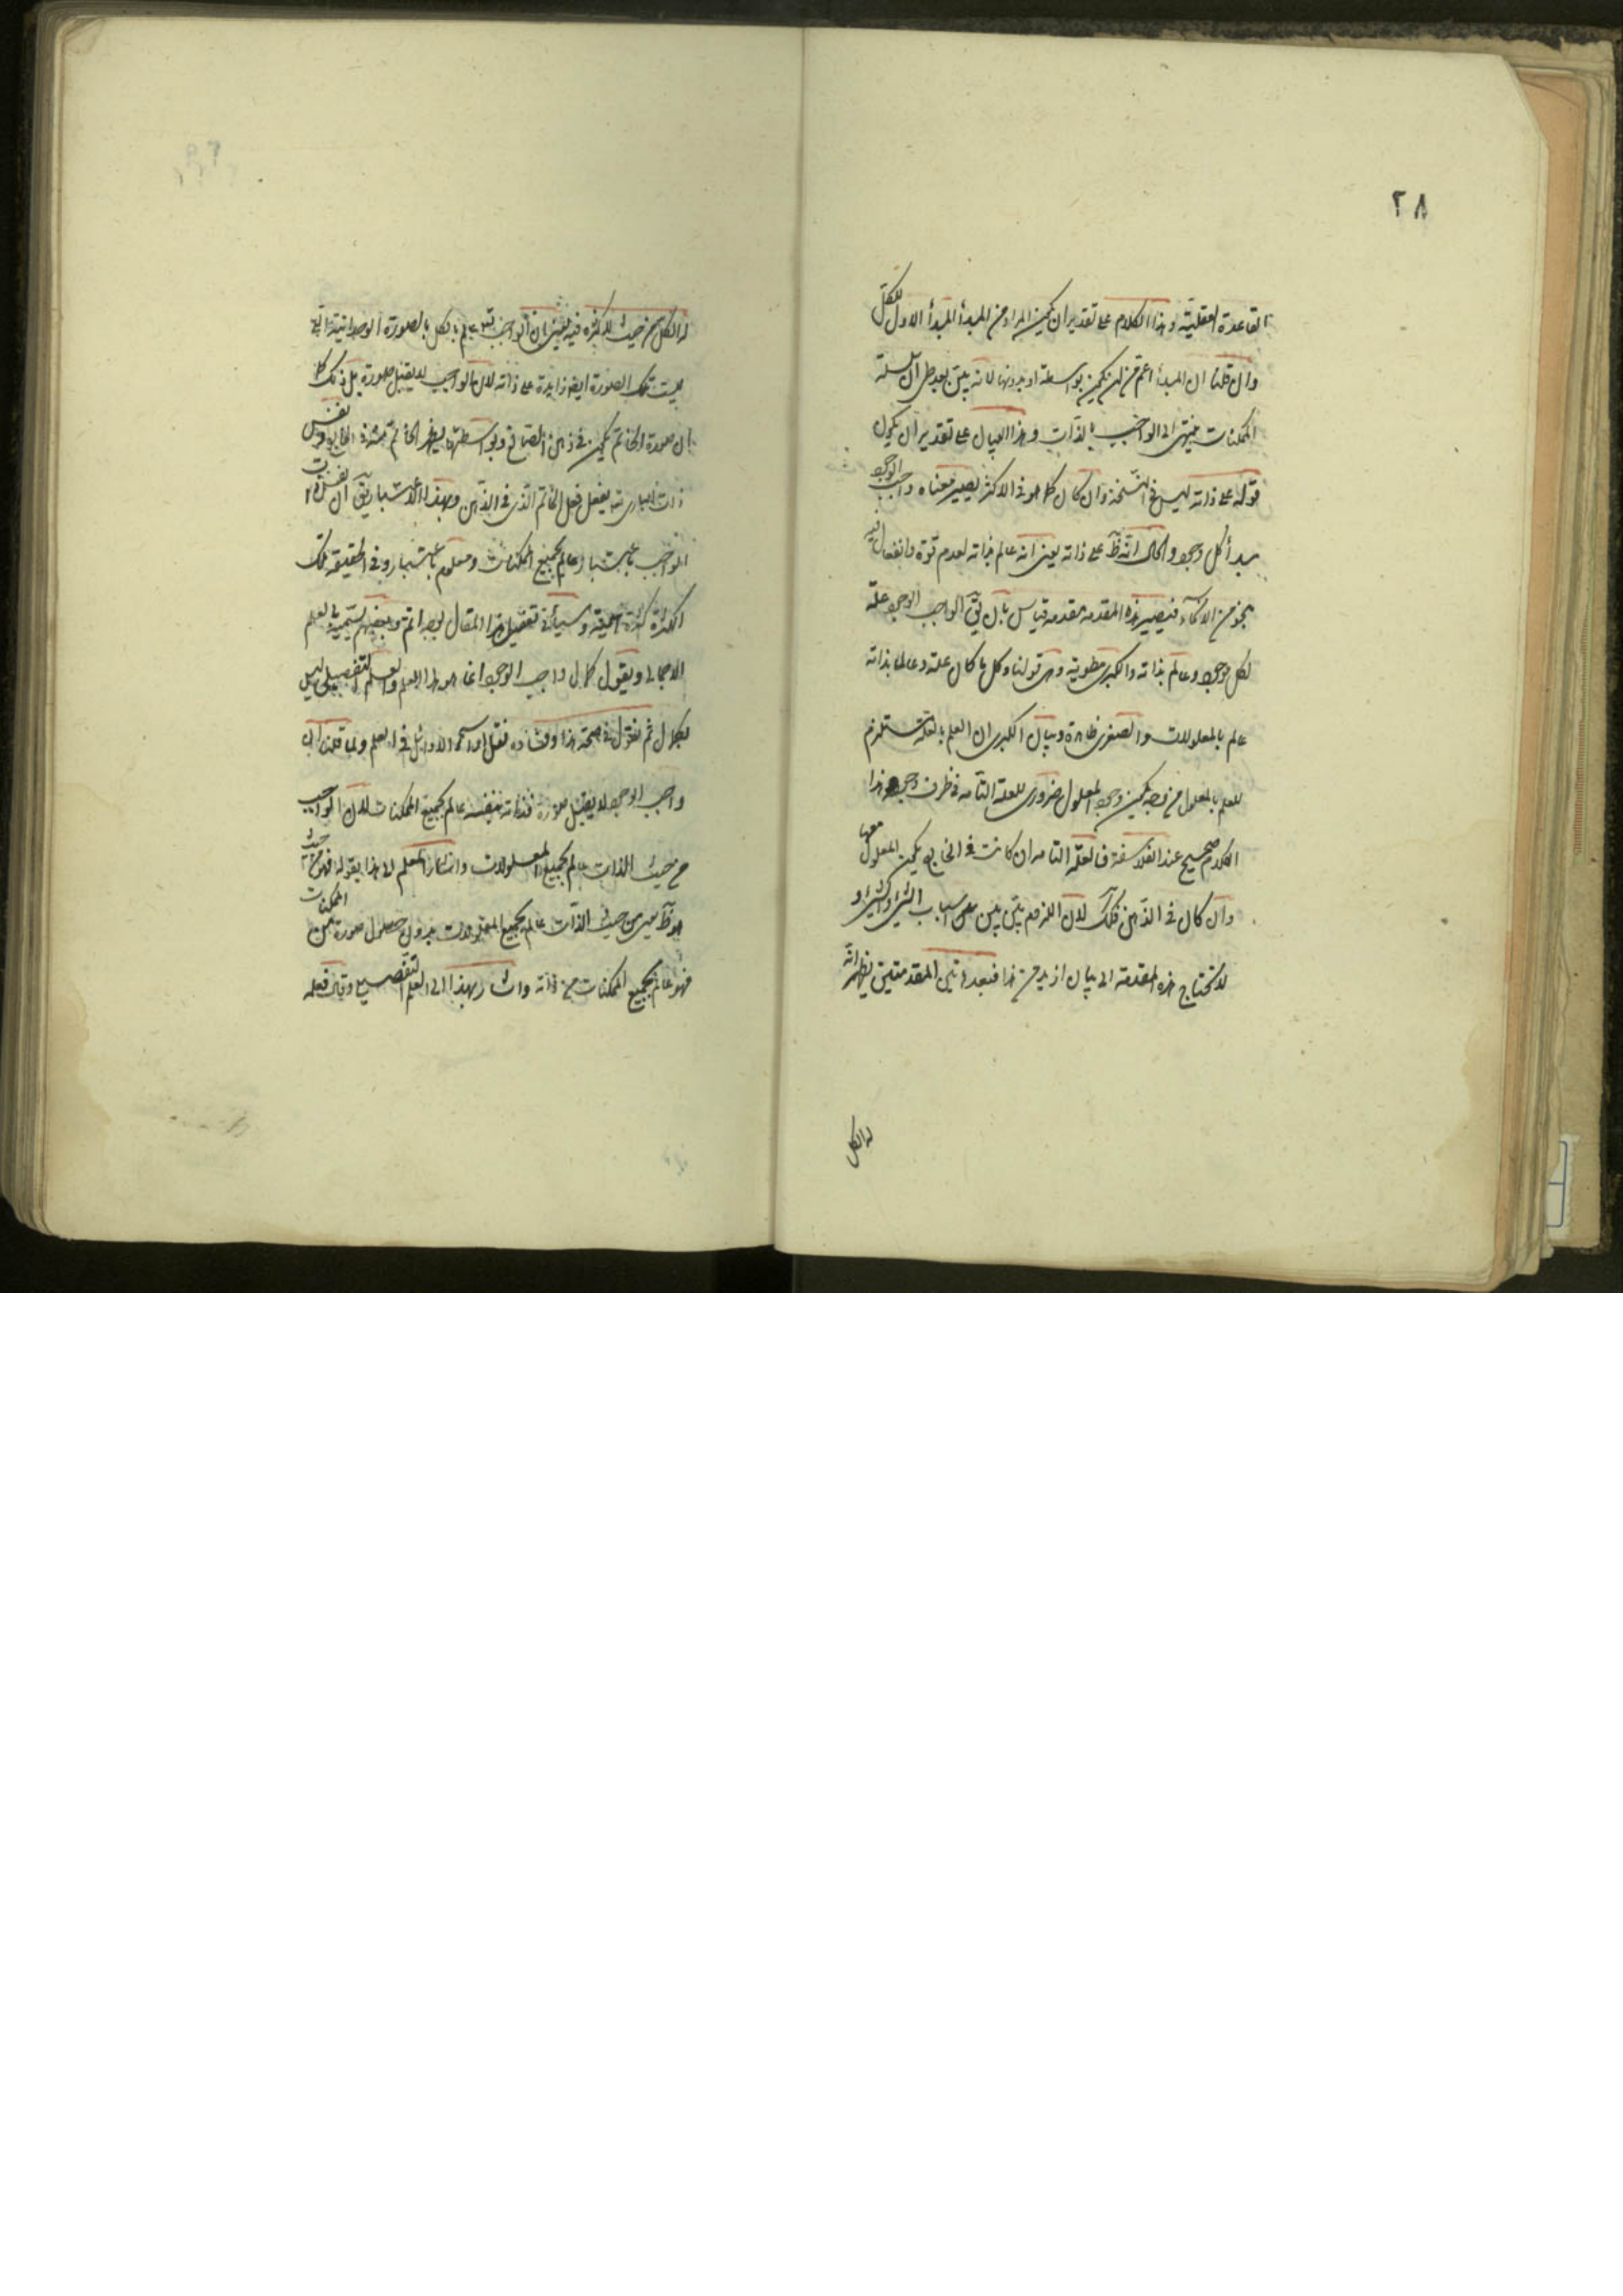 ٢٨
القاعدة العقلية وهذا الكلام على تقدير ان يكون المراد من المبدأ المبدأ الاول للكل
وان قلنا ان المبدأ اعم من ان يكون بواسطة او بدونها لانه يتبين بعد بطلان سلسلة
الممكنات ينتهى الى الواجب بالذات وهذا البيان على تقدير ان يكون
قوله على ذاته ليس فى النسخة وان كان كما هو فى الاكثر يصير معناه واجب الوجود
مبدأ كل وجود والحال انه ظ على ذاته يعنى انه عالم بذاته لعدم قوة وانفعال فيه
بنحو من الانحاء فيصير هذه المقدمة مقدمة قياس بان يق الواجب الوجود علة
لكل موجود وعالم بذاته والكبرى مطوية وهى قولنا وكل ما كان علة وعالما بذاته
عالم بالمعلولات والصغرى ظاهرة وبيان الكبرى ان العلم بالعلة يستلزم
للعلم بالمعلول من وجه يكون وجود المعلول ضرورى للعلة التامة فى ظرف وجود هذا
الكلام صحيح عند الفلاسفة فالعلة التامة ان كانت فى الخارج يكون المعلول معها
وان كان فى الذهن فكك لان اللزوم بين بين اسباب الشىء والشىء و
لا تحتاج هذه المقدمة الى بيان ازيد من هذا فبعد هاتين المقدمتين يظهر انه
له الكل
له الكل من حيث لا كثرة فيه يعنى ان الواجب تع عالم بالكل بالصورة الوحدانية التى
ليست تلك الصورة ايض زايدة على ذاته لان الواجب لا يقبل صورة بل ذلك كما
ان صورة الخاتم يكون فى ذهن الصائغ وبواسطتها يظهر الخاتم فى الخارج ونفس
ذات البارى تع يفعل فعل الخاتم الذى فى الذهن وبهذا الاعتبار يق ان نفس ذات
الواجب باعتبار عالم بجميع الممكنات ومعلوم باعتبار وفى الحقيقة تلك
الكثرة كثرة اسمية وسيأتى تفصيل هذا المقال بوجه اتم وبعضهم يسميه بالعلم
الاجمالى ويقول كمال واجب الوجود انما هو هذا العلم والعلم التفصيلى ليس
بكمال ثم نقول فى صحة هذا وفساده نقل اورا سمو الاوائل فى العلم ولما قلنا ان
واجب الوجود لا يقبل صورة فذاته بنفسه عالم بجميع الممكنات لان الواجب
من حيث الذات عالم بجميع المعلولات واشار المعلم الى هذا بقوله فهو من حيث
هو ظ يعنى من حيث الذات عالم بجميع المعلولات بدون حصول صورة من الممكنات
فهو عالم بجميع الممكنات من ذاته واشار بهذا الى العلم التفصيلى وقال فعلمه